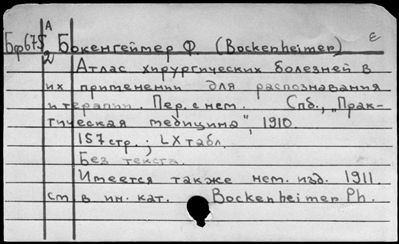 А
Бф675 Бокенгеймер Ф. (Bockenheimer) Є
2 Атлас хирургических болезней в
их применении для распознавания
и терапии. Пер. с нем. Спб., "Прак-
тическая медицина", 1910.
157 стр.; LX табл.
Без текста.
Имеется также нем. изд. 1911.
см. в ин. кат. Bockenheimer Ph.